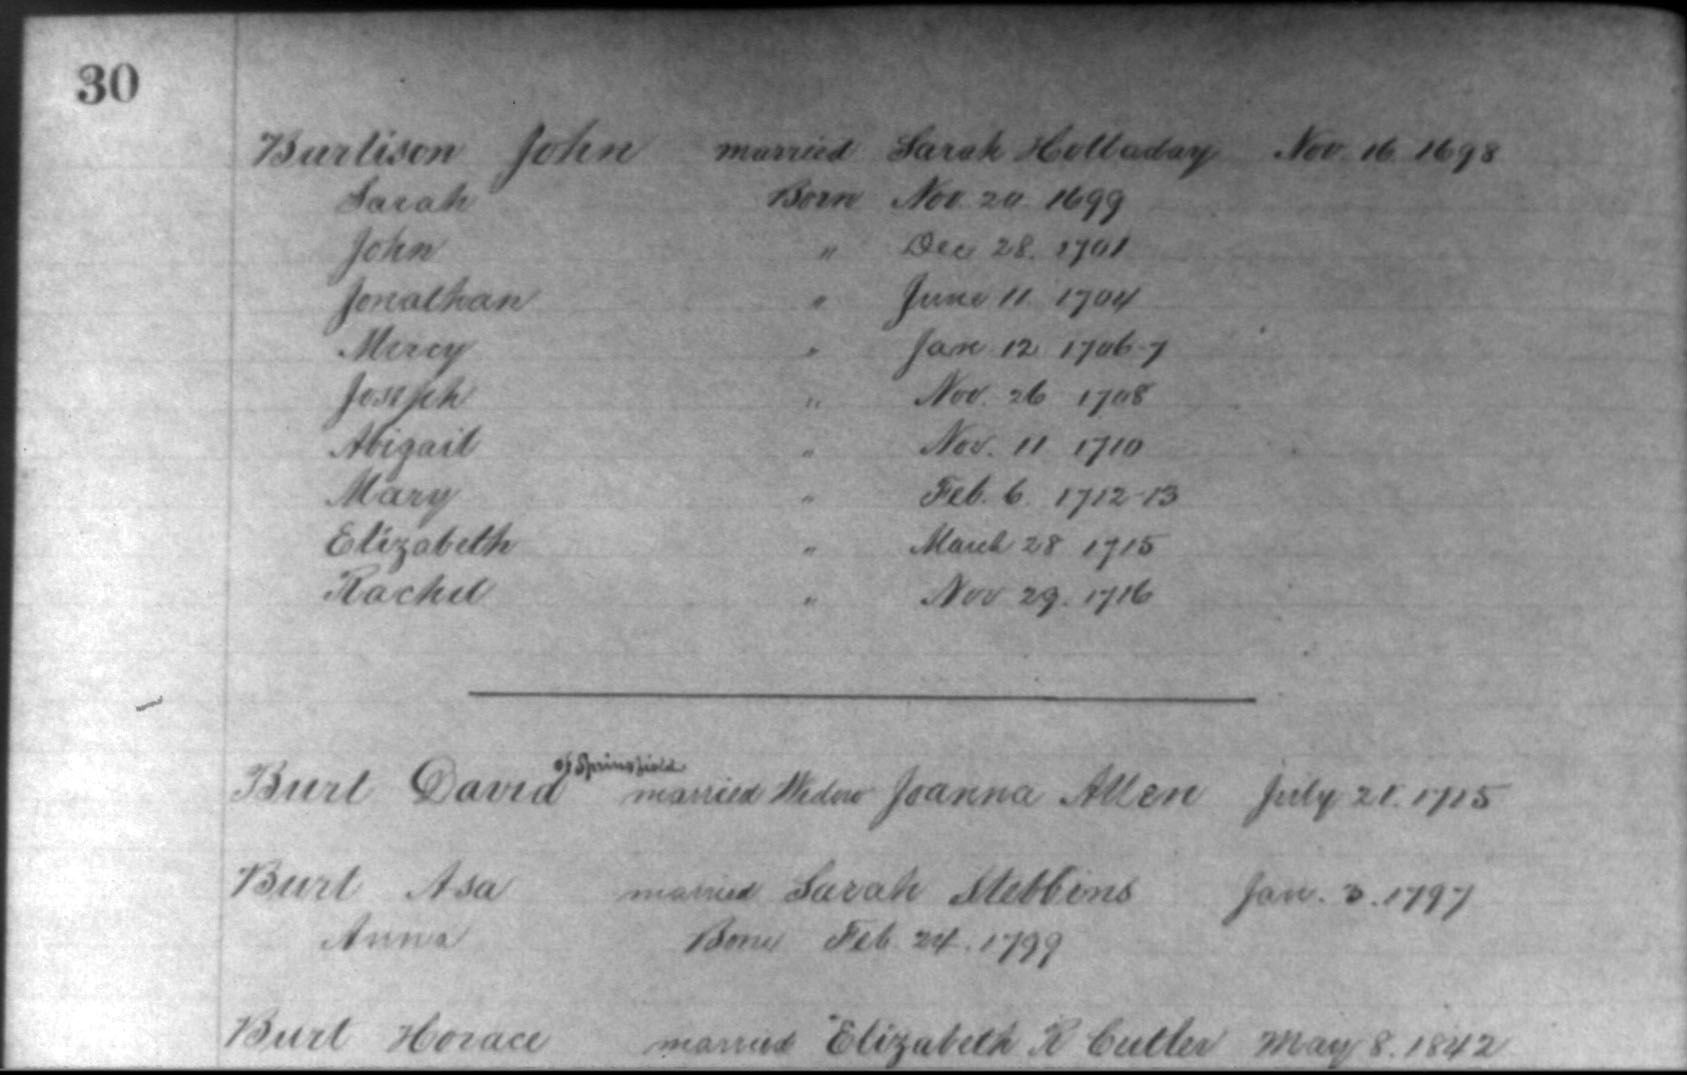 30
Burlison John married Sarah Holladay Nov. 16. 1698
Sarah Born Nov. 20. 1699
John " Dec 28. 1701
Jonathan " June 11 1704
Mercy " Jan 12 1706-7
Joseph " Nov. 26 1708
Abigail " Nov. 11 1710
Mary " Feb. 6. 1712-13
Elizabeth " March 28 1715
Rachel " Nov 29. 1716
Burt David of Springfield married Widow Joanna Allen July 21. 1715
Burt Asa married Sarah Stebbins Jan. 3. 1797
Anna Born Feb. 24. 1799
Burt Horace married Elizabeth R Cutler May 8. 1842